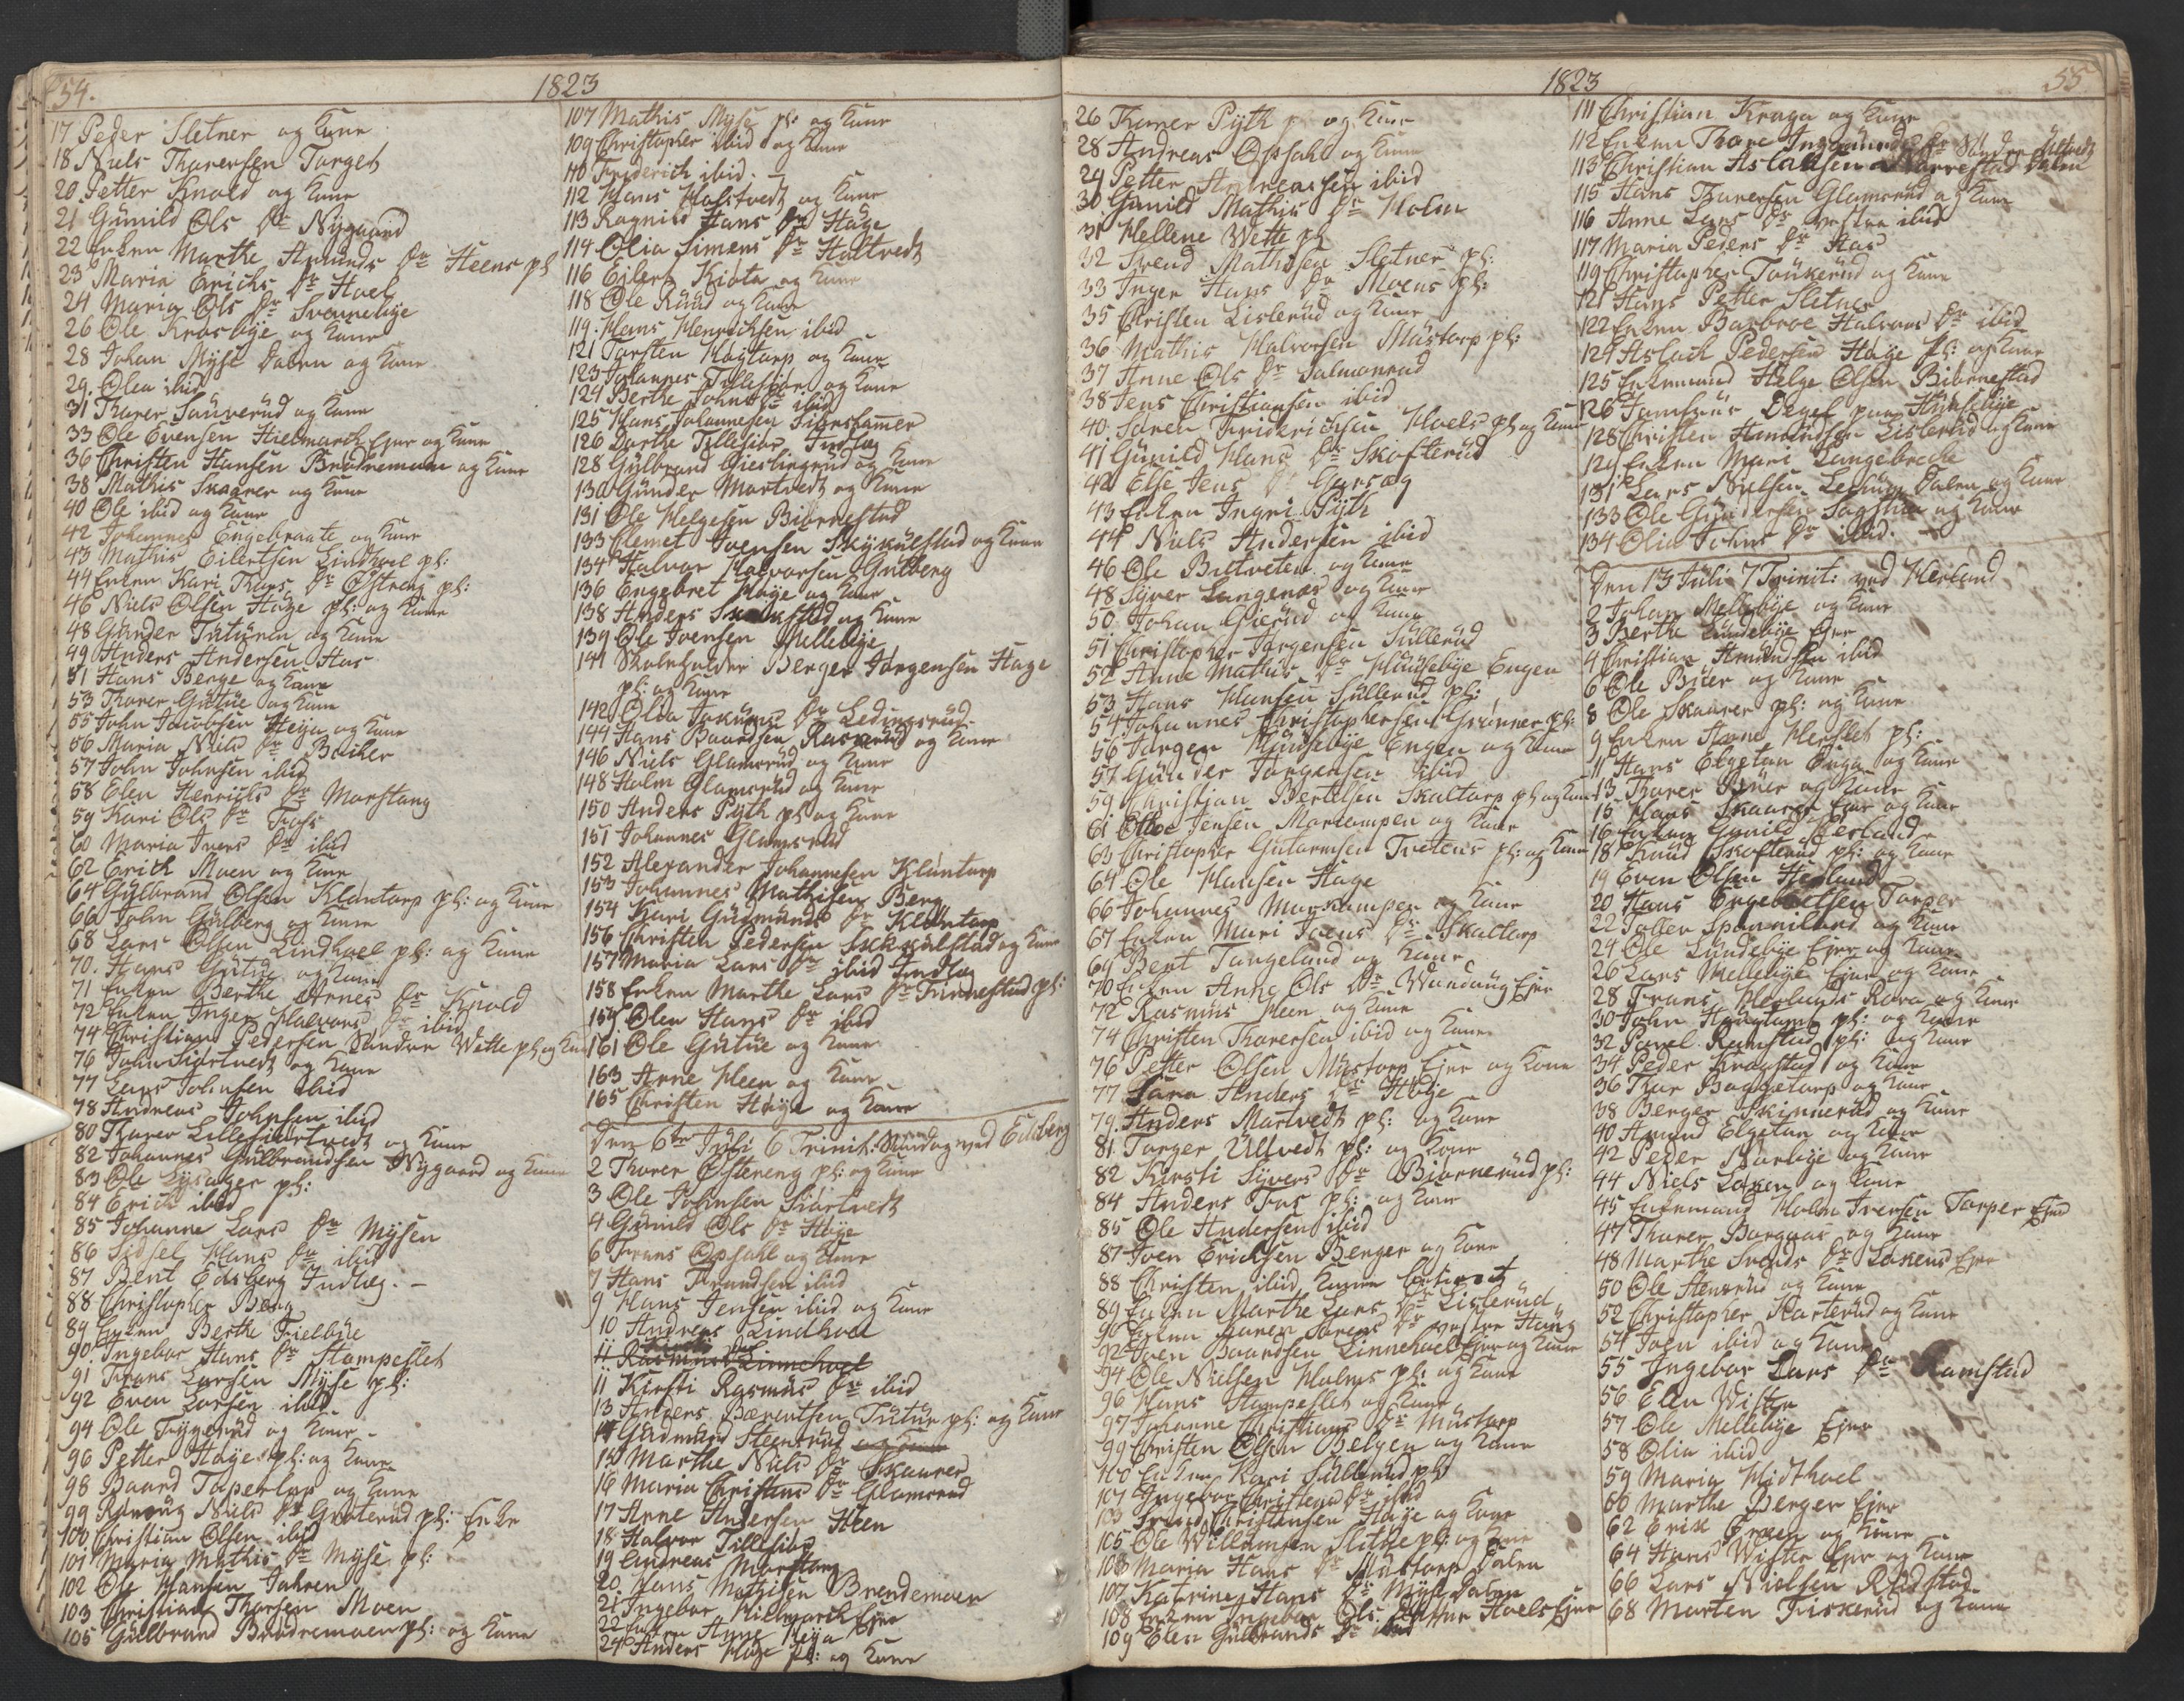 54.
1823
17 Peder Sletner og Kone
18 Niels Thorersen Torget
20 Petter Knold og Kone
21 Gunild Ols Dr Nygaard
22 Enken Marthe Amunds Dr Heens pl
23 Maria Erichs Dr Hoel
24 Maria Ols Dr Svennebye
26 Ole Krosbye og Kone
28 Johan Myse Dalen og Kone
29. Olea ibid
31 Thorer Sauverud og Kone
33 Ole Evensen Hielmarck Ejer og Kone
36 Christen Hansen Brødremoen og Kone
38 Mathis Skaarer og Kone
40 Ole ibid og Kone
42 Johannes Engebraate og Kone
43 Mathis Eilertsen Lindhoel pl:
44 Enken Kari Thors Dr Østreng pl:
46 Niels Olsen Høye pl: og Kone
48 Gunder Tutturen og Kone
49 Anders Andersen Aas
51 Hans Berge og Kone
53 Thorer Gutue og Kone
55 John Jacobsen Heya og Kone
56 Maria Niels Dr
57 John Johnsen ibid
58 Elen Henrichs Dr Morstang
59 Kari Ols Dr Foss
60 Maria Ivers Dr ibid
62 Erich Moen og Kone
64 Gulbrand Olsen Klontorp pl: og Kone
66 John Gulberg og Kone
68 Lars Olsen Lindhoel pl: og Kone
70. Hans Gutue og Kone
71 Enken Berthe Arnes Dr Knold
72 Enken Inger Halvors Dr ibid
74 Christian Pedersen Søndre Wette pl og Kone
76 John Siørtvedt og Kone
77 Lars Johnsen ibid
78 Andreas Johnsen ibid
80 Thorer Lillesiørtvedt og Kone
82 Johannes Gulbrandsen Nygaard og Kone
83 Ole Lysager pl:
84 Erich ibid
85 Johanne Lars Dr Mysen
86 Sidsel Hans Dr ibid
87 Bent Edsberg Indlæg. –
88 Christopher Berg
89 Enken Berthe Fielbye
90. Ingebor Hans Dr Stampeslet
91 Frans Larsen Myse pl:
92 Even Larsen ibid
94 Ole Tryggerud og Kone –
96 Petter Høye pl: og Kone
98 Baard Toperløp og Kone
99 Ranvug Niels Dr Groterud pl: Enke
100 Christian Olsen ibid
101 Maria Mathis Dr Myse pl:
102 Ole Hansen Jahren
103 Christian Thorsen Moen
105 Gulbrand Brødremoen pl: og Kone
107 Mathis Myse pl: og Kone
109 Christopher ibid og Kone
110 Friderich ibid. –
112 Hans Holstvedt og Kone
113 Ragnild Hans Dr Høye
114 Olia Simens Dr Haltvedt
116 Eilert Kiota og Kone
118 Ole Ruud og Kone
119. Hans Henrichsen ibid
121 Torsten Høgtorp og Kone
123 Johannes Tillesiør og Kone
124 Berthe Johns Dr ibid
125 Hans Johannesen Fionshammer
126 Dorthe Tillesiør Indlæg
128 Gulbrand Giestingrud og Kone
130 Gunder Martvedt og Kone
131 Ole Helgesen Biørnestad
133 Clemet Ivensen Skykulstad og Kone
134 Halvor Halvorsen Gulberg
136 Engebret Høye og Kone
138 Anders Skakstad og Kone
139 Ole Ivensen Mellebye
141 Skoleholder Berger Jørgensen Høye
pl: og Kone
142 Olea Ledingsrud
144 Hans Baardsen Rasverud og Kone
146 Niels Glamsrud og Kone
148 Holm Glamsrud og Kone
150 Anders Pyth pl og Kone
151 Johannes Glamsrud
152 Alexander Johannesen Klontorp
153 Johannes Mathisen Berg
154 Kari Gudmunds Dr Klontorp
156 Christen Pedersen Skykulstad og Kone
157 Maria Lars Dr ibid Indlæg
158 Enken Marthe Lars Dr Finnestad pl:
159. Olea Hans Dr ibid
161 Ole Gutue og Kone
163 Arne Heen og Kone
165 Christen Høye og Kone
Den 6te Juli 6 Trinit: Søndag ved Eidsberg
2 Thorer Østereng pl: og Kone
3 Ole Johnsen Siørtvedt
4 Gunild Ols Dr Høye
6 Frans Opsahl og Kone
7 Hans Frandsen ibid
9 Hans Jensen ibid og Kone
10 Andreas Lindhoel
11 Rasmus Linnehoel
11 Kirsti Rasmus Dr ibid
13 Anders Bærentsen Tutur pl: og Kone
14 Gudmund Steensrud og Kone
15 Marthe Niels Dr Skaarer
16 Maria Christens Dr Glamsrud
17 Anne Andersen Heen
18 Halvor Tillesiør
19 Andreas Morstang
20. Hans Mathisen Brendemoen
21 Ingebor Hielmarck Ejer
22 Enken Anne Heya
24 Anders Høye pl: og Kone
1823
55
26 Thorer Pyth pl og Kone
28 Andreas Opsahl og Kone
29 Petter Andreassen ibid
30 Gunild Mathis Dr Holm
31 Hellene Wette pl
32 Svend Mathisen Sletner pl:
33 Inger Hans Dr Moens pl:
35 Christen Lislerud og Kone
36 Mathis Halvorsen Mustorp pl:
37 Anne Ols Dr Salmonrud
38 Jens Christiansen ibid
40. Søren Friderichsen Hoels pl og Kone
41 Gunild Hans Dr Skofterud
42 Else Jens Dr Garsæg
43 Enken Ingri Pyth
44 Niels Andersen ibid
46 Ole Butveten og Kone
48 Syver Langenæs og Kone
50 Johan Gierud og Kone
51 Christopher Jørgensen Sullerud
52 Anne Mathis Dr Huusebye Engen
53 Hans Hansen Sullerud pl:
54 Johannes Christophersen Grønner pl:
56 Jørgen Huusebye Engen og Kone
57 Gunder Jørgensen ibid
59 Christian Bertelsen Skaltorp pl og Kone
61 Otter Jensen Morkampen og Kone
63 Christopher Gutormsen Tvetens pl: og Kone
64 Ole Hansen Høye
66 Johannes Morkampen og Kone
67 Enken Mari Ivens Dr Skaltorp
69 Bent Tangelund og Kone
70 Enken Anne Ols Dr Wandaug Ejer
72 Rasmus Heen og Kone
74 Christen Thorersen ibid og Kone
76 Petter Olsen Mustorp Ejer og Kone
77 Sara Anders Dr Høye
79. Anders Martvedt pl: og Kone
81 Torger Ultvedt pl: og Kone
82 Kirsti Syvers Dr Biørnerud pl:
84 Anders Fos pl: og Kone
85 Ole Andersen ibid
87 Iven Erichsen Berger og Kone
88 Christen ibid Konen besvært
89 Enken Marthe Lars Dr Lislerud
90 Enken Karen Sørens Dr vestre Haug
92 Iven Baardsen Linnehoel Ejer og Kone
94 Ole Nielsen Holms pl: og Kone
96 Hans Stampeslet og Kone
97 Johanne Christians Dr Mustorp
99 Christen Olsen Belgen og Kone
100 Enken Kari Sullerud pl:
101 Ingebor Christens Dr ibid
103 Svend Christensen Høye og Kone
105 Ole Willumsen Slitue pl: og Kone
106 Maria Hans Dr Mustorp Dalen
107 Katrine Hans Dr Myse Dalen
108 Enken Ingebor Ols Dr Hoels Ejer
109 Elen Gulbrands Dr ibid
111 Christian Kraga og Kone
112 Enken Thore Ingmunds Dr Søndre Ultvedt
113 Christian Aslaksen Narrestad Dalen
115 Hans Thorersen Glamsrud og Kone
116 Anne Lars Dr vestre ibid
117 Maria Peders Dr Aas
119 Christopher Toukerud og Kone
121 Hans Petter Sletner
122 Enken Barbroe Halvors Dr ibid
124 Aslach Pedersen Høye pl: og Kone
125 Enkemand Helge Olsen Biørnestad
126 Jomfrue Degef paa Huusebye
128 Christen Amundsen Lislerud og Kone
129 Enken Mari Langebrecke
131 Lars Nielsen Lekum Dalen og Kone
133 Ole Gundersen Sagstuen og Kone
134 Olia Johns Dr ibid. –
Den 13 Juli 7 Trinit: ved Herland
2 Johan Mellebye og Kone
3 Berthe Lundebye Ejer
4 Christian Amundsen ibid
6 Ole Buer og Kone
8 Ole Skaarer pl: og Kone
9 Enken Anne Herslet pl:
11 Hans Elgetun Enga og Kone
13 Thorer Buer og Kone
15 Hans Skaarer Ejer og Kone
16 Enken Gunild Herland
18 Knud Skofterud pl: og Kone
19 Even Olsen Herland
20 Hans Engebretsen Torper
22 Tosten Spannilund og Kone
24 Ole Lundebye Ejer og Kone
26 Lars Mellebye Ejer og Kone
28 Frans Herlunds Rora og Kone
30 John Haugtomt pl: og Kone
32 Povel Ramstad pl: og Kone
34 Peder Kragstad og Kone
36 Thor Baggetorp og Kone
38 Berger Skinnerud og Kone
40 Amund Elgetun og Kone
42 Peder Narbye og Kone
44 Niels Løken og Kone
45 Enkemand Holm Iversen Torper Ejer
47 Thorer Borgaas og Kone
48 Marthe Svends Dr Løkens Ejer
50 Ole Hensrud og Kone
52 Christopher Karterud og Kone
54 Iven ibid og Kone
55 Ingebor Lars Dr Ramstad
56 Elen Wister
57 Ole Mellebye Ejer
58 Olia ibid
59 Maria Midthoel
60 Marthe Berger Ejer
62 Erik Grøen og Kone
64 Hans Wister Ejer og Kone
66 Lars Nielsen Rudstad
68 Morten Fiskerud og Kone